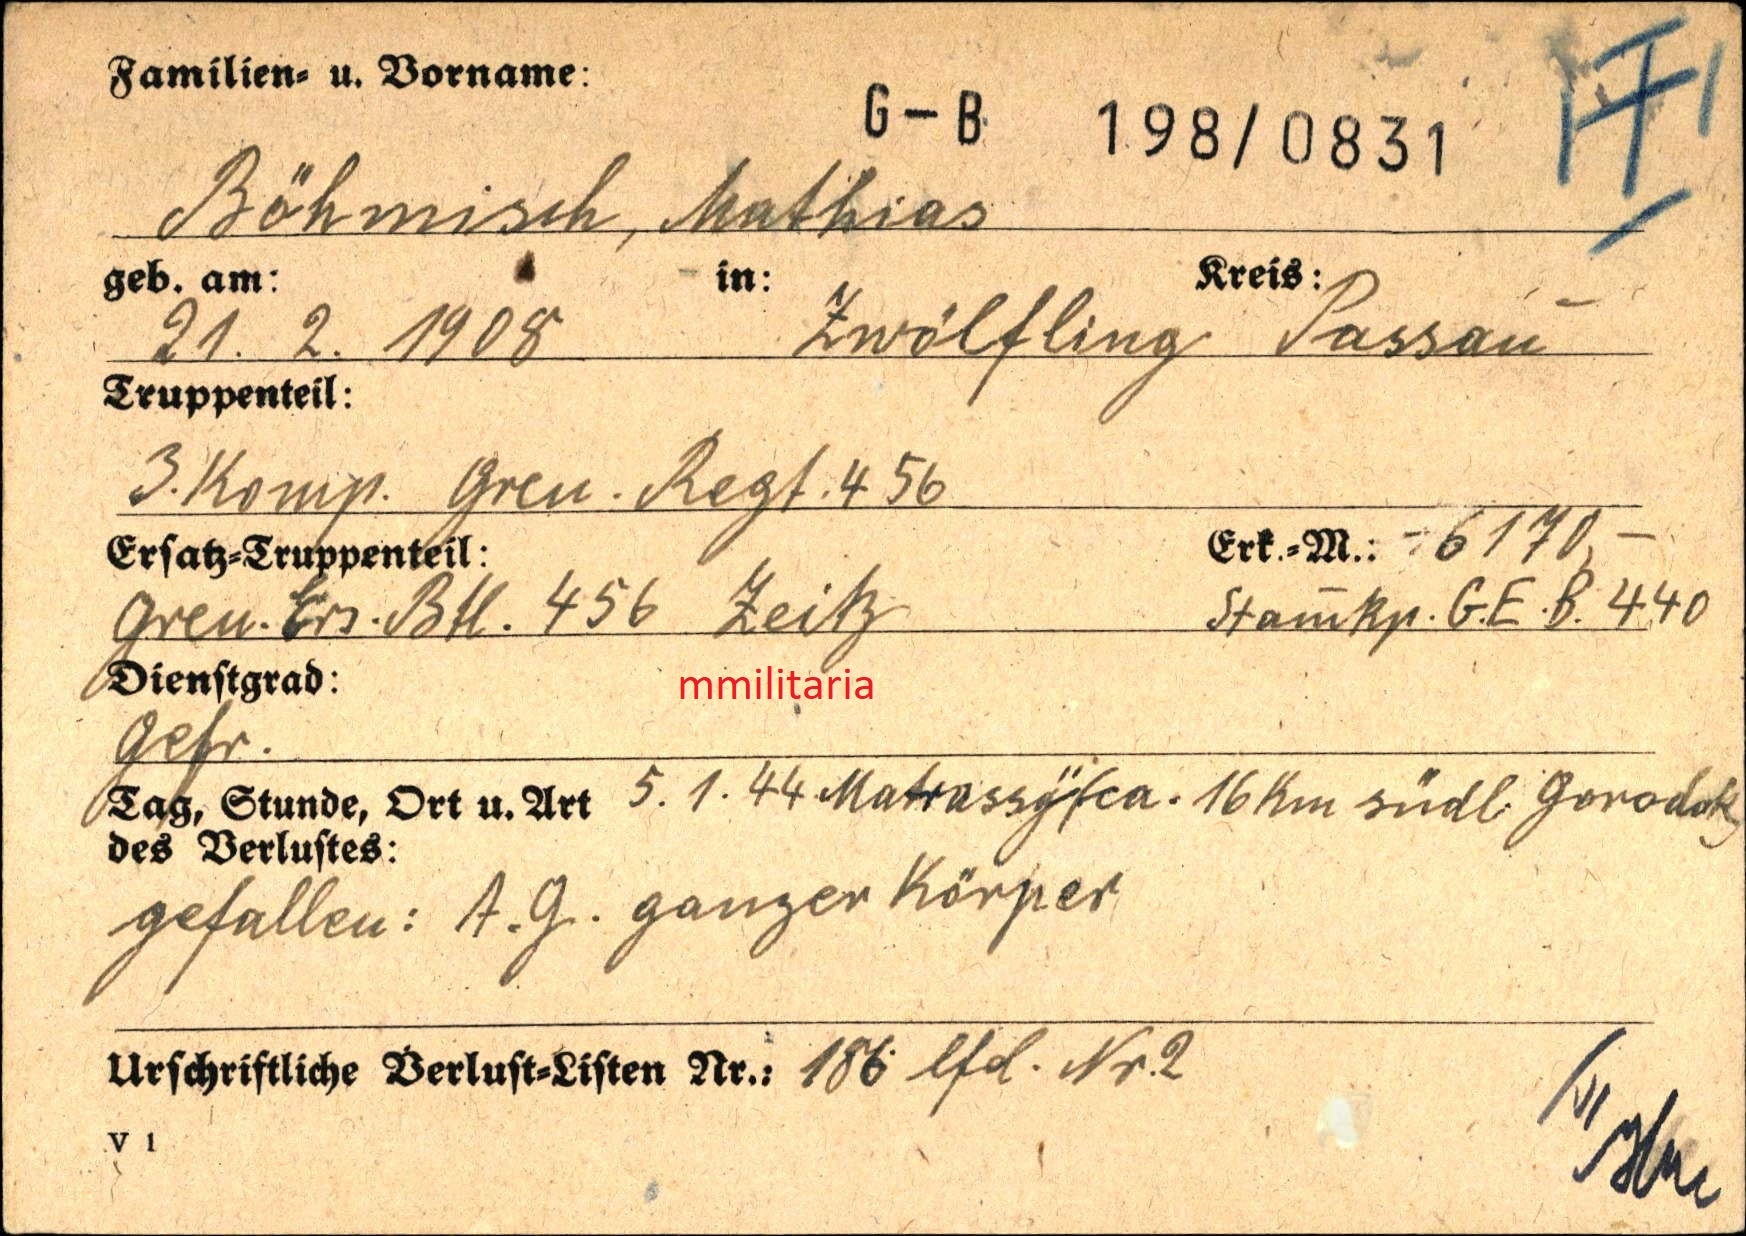 Familien- u. Vorname:
G-B 198/0831
Böhmisch, Mathias
geb. am: in: Kreis:
21. 2. 1908 Zwölfling Passau
Truppenteil:
3. Komp. Gren. Regt. 456
Ersatz-Truppenteil: Erk.-M.: -6170,-
Gren. Ers. Btl. 456 Zeitz Stam̅kp. G.E.B. 440
Dienstgrad:
mmilitaria
Gefr.
Tag, Stunde, Ort u. Art 5. 1. 44 ca. 16 km südl. Gorodok
des Verlustes:
gefallen: A.G. ganzer Körper
Urschriftliche Verlust-Listen Nr.: 186 lfd. Nr. 2
V 1